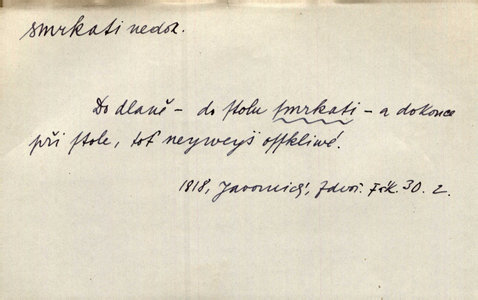 smrkati nedok.
Do dlaně - do stolu smrkati - a dokonce
při stole, toť neyweyš osskliwé.
1818, Javornický, Zdvoř. 30. 2.